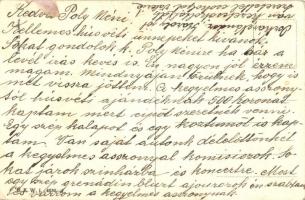 Kedves Poly Néni!
Kellemes húsvéti ünnepeket kivánok.
Sokat gondolok k. Poly Nénire ha bár a
levél irás keves is. Én nagyon jól érzem
magam. Mindnyájan örültek, hogy is
mét vissza jöttem. A kegyelmes asszony
tól húsvéti ajándéknak 500 koronát
kaptam mert cipőt szerettem volna
Egy szép kalapot és egy kosztümöt is kap
tam. Van saját autónk délelőttönként
a kegyelmes asszonnyal komissiózok. So
kat járok szinházba és koncertre. Most
egy grenadin blúzt ajourozok
a kegyelmes asszonynak.